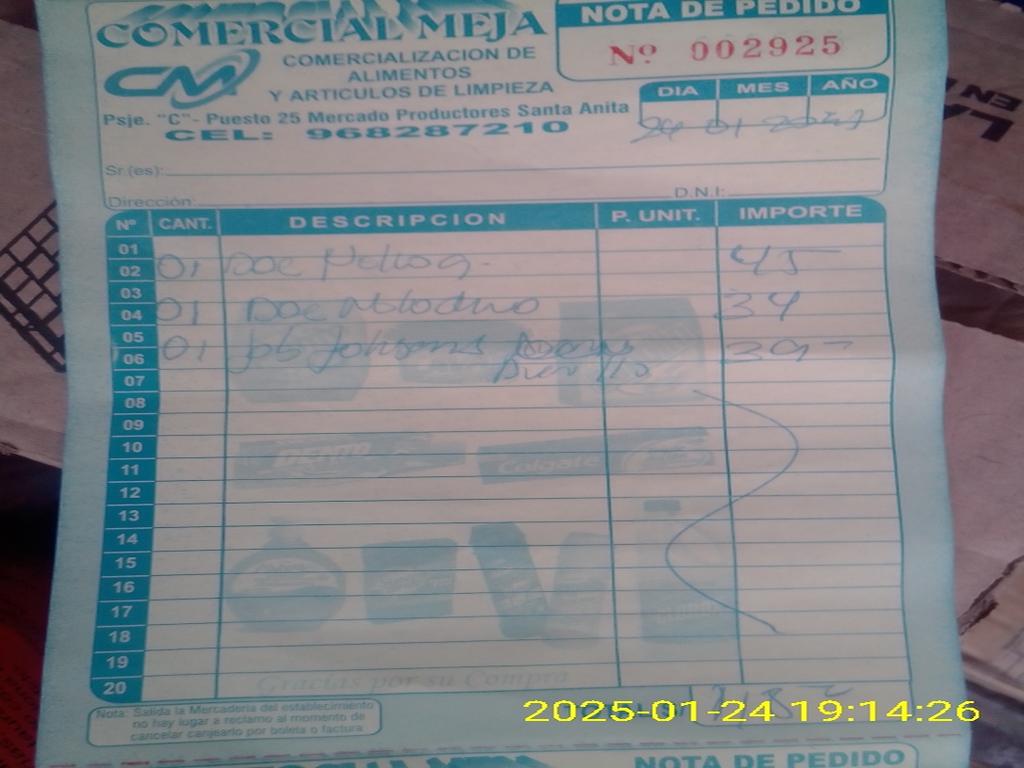 COMERCIAL MEJA
CM
COMERCIALIZACION DE
ALIMENTOS
Y ARTICULOS DE LIMPIEZA
Psje. "C"- Puesto 25 Mercado Productores Santa Anita
CEL: 968287210
NOTA DE PEDIDO
Nº 002925
DIA MES AÑO
24 01
Sr.(es):
Dirección: D.N.I:
Nº CANT. DESCRIPCION P. UNIT. IMPORTE
01
02 01 Doc 45
03
04 01 Doc 34
05
06 01 Johsons 39
07
08
09
10
11 Colgate
12
13
14
15
16
17
18
19
20
Gracias por su Compra
Nota: Salida la Mercaderia del establecimiento
no hay lugar a reclamo al momento de
cancelar canjearlo por boleta o factura
2025-01-24 19:14:26
NOTA DE PEDIDO